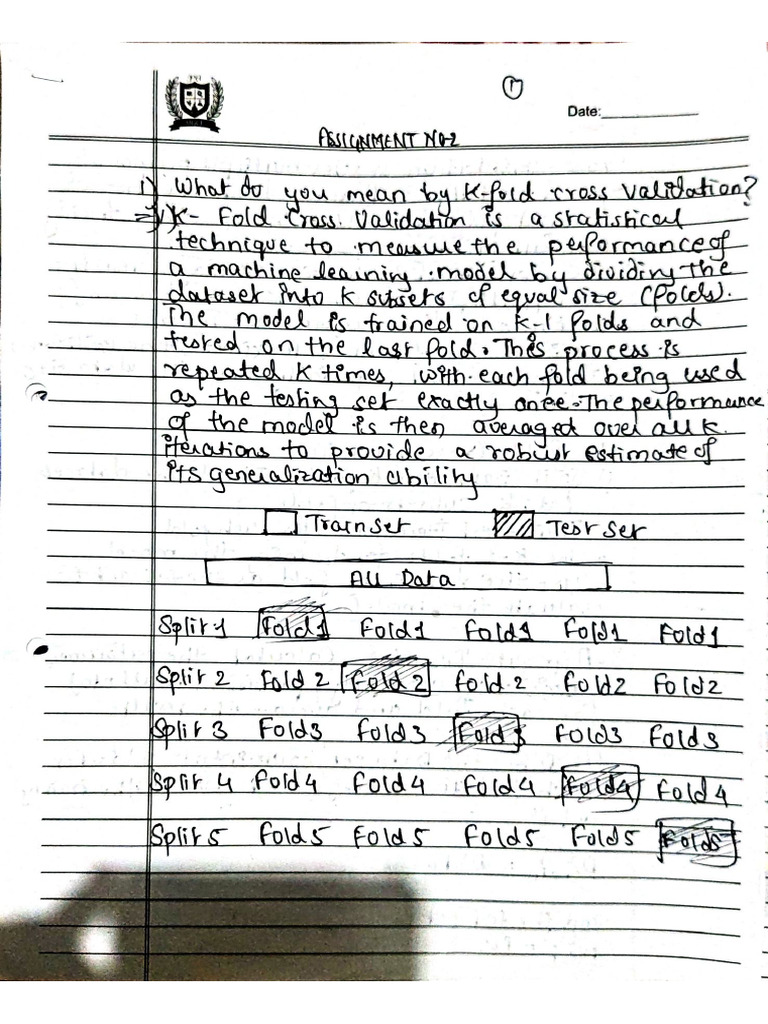 1
Date:
ASSIGNMENT NO-2
1) What do you mean by K-fold cross validation?
=> K- Fold Cross Validation is a statistical
technique to measure the performance of
a machine learning model by dividing the
dataset into K subsets of equal size (folds).
The model is trained on K-1 folds and
tested on the last fold. This process is
repeated K times, with each fold being used
as the testing set exactly once. The performance
of the model is then averaged over all K
iterations to provide a robust estimate of
its generalization ability
Train set Test Set
All Data
Split 1 Fold 1 Fold 1 Fold 1 Fold 1 Fold 1
Split 2 Fold 2 Fold 2 Fold 2 Fold 2 Fold 2
Split 3 Fold 3 Fold 3 Fold 3 Fold 3 Fold 3
Split 4 Fold 4 Fold 4 Fold 4 Fold 4 Fold 4
Split 5 Fold 5 Fold 5 Fold 5 Fold 5 Fold 5